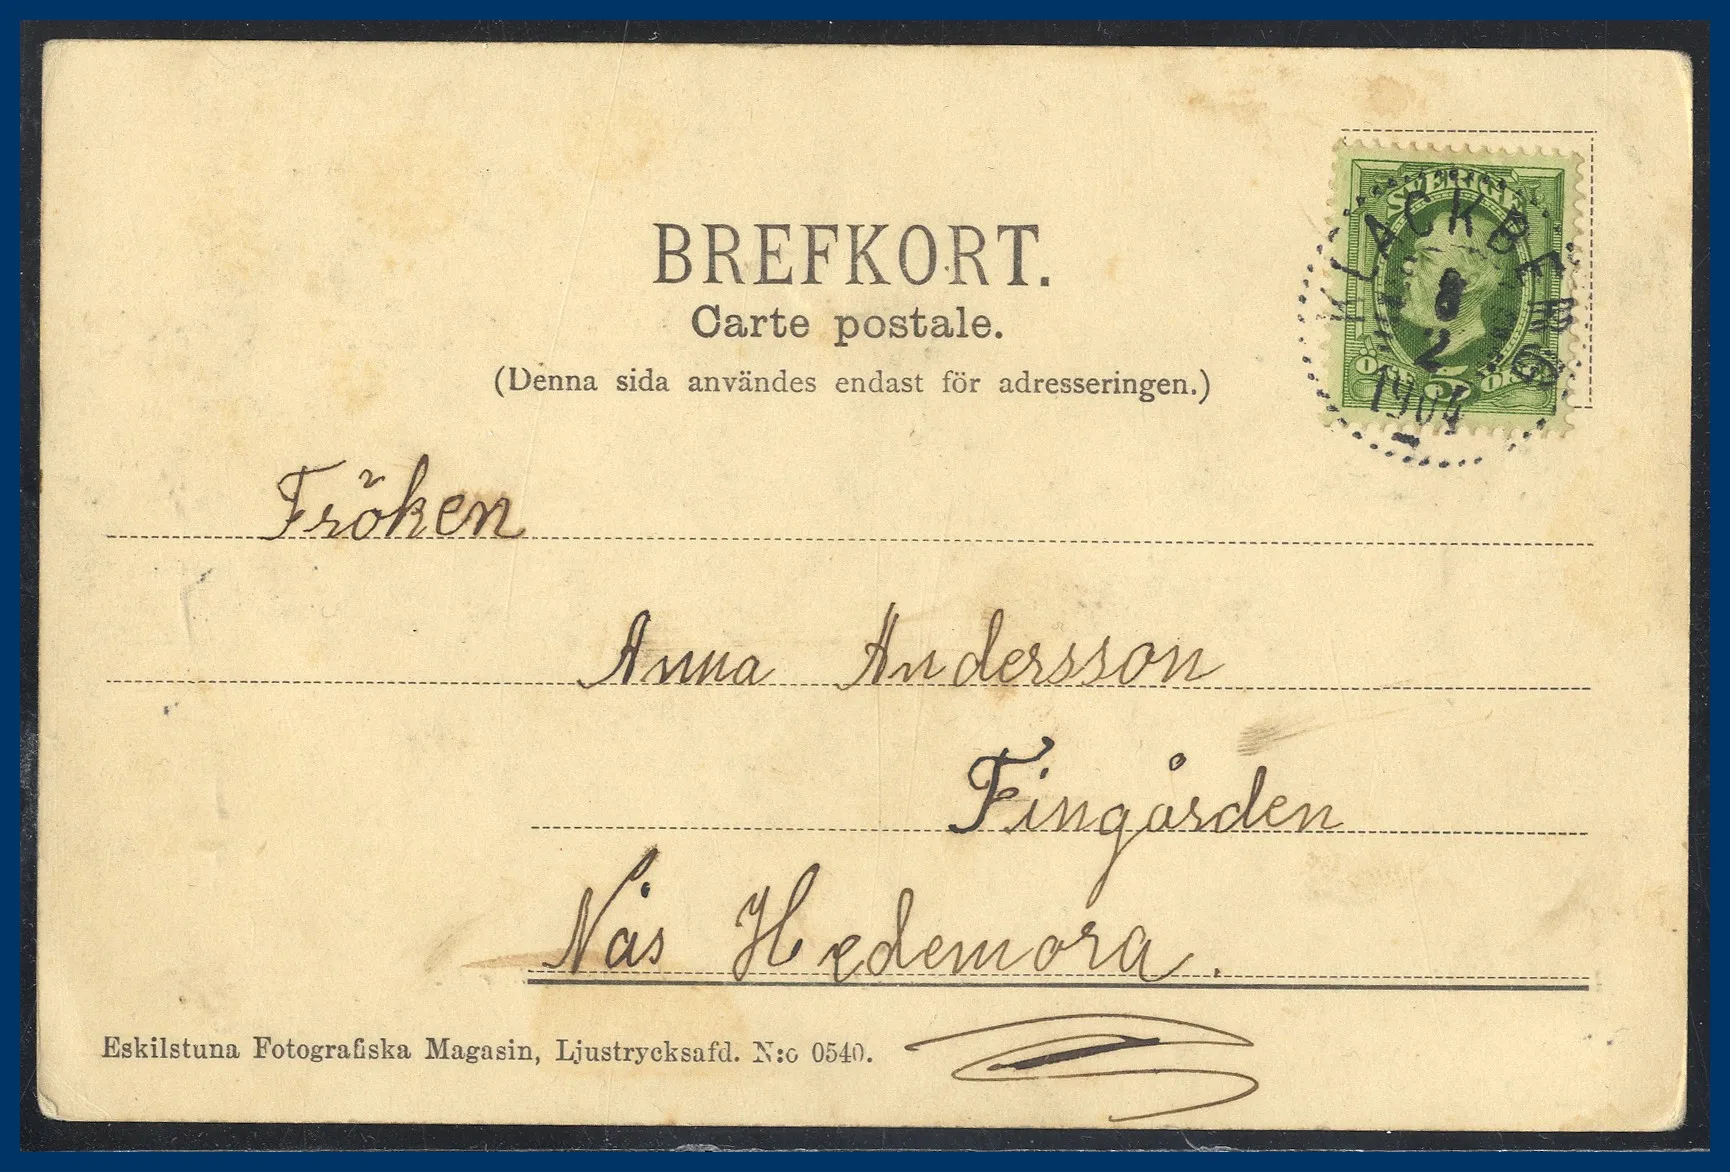 BREFKORT.
Carte postale.
(Denna sida användes endast för adresseringen.)
SVERIGE
KLACKBERG
8
2
1904
5
Fröken
Anna Andersson
Fingården
Nås Hedemora.
Eskilstuna Fotografiska Magasin, Ljustrycksafd. N:o 0540.